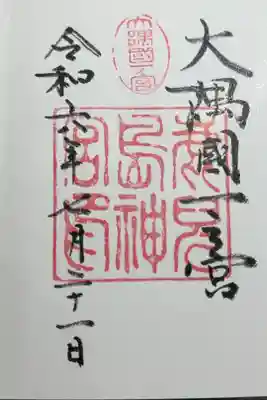 大隅國一之宮
鹿兒
島神
宮
令和六年七月二十一日